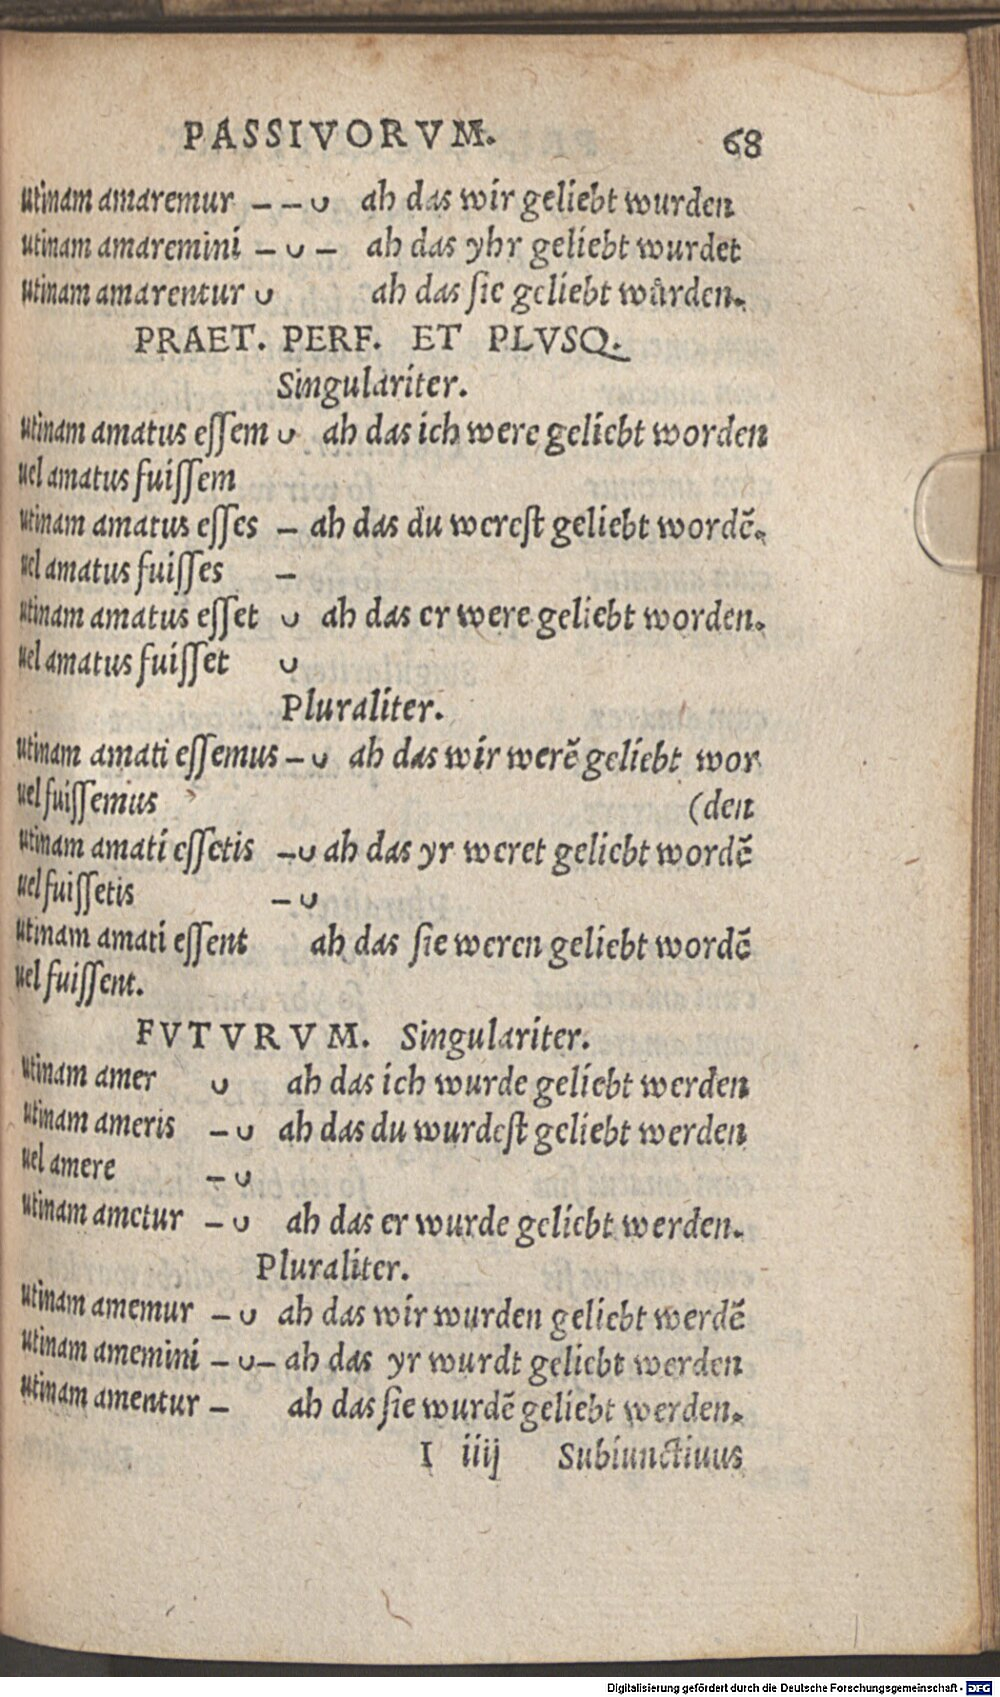 PASSIVORVM. 68
utinam amaremur – – ᴗ ah das wir geliebt wurden
utinam amaremini – ᴗ – ah das yhr geliebt wurdet
utinam amarentur ᴗ ah das sie geliebt wůrden.
PRAET. PERF. ET PLVSQ.
Singulariter.
utinam amatus essem ᴗ ah das ich were geliebt worden
uel amatus fuissem
utinam amatus esses – ah das du werest geliebt wordē.
uel amatus fuisses –
utinam amatus esset ᴗ ah das er were geliebt worden.
uel amatus fuisset ᴗ
Pluraliter.
utinam amati essemus – ᴗ ah das wir werē geliebt wor
uel fuissemus (den
utinam amati essetis – ᴗ ah das yr weret geliebt wordē
uel fuissetis – ᴗ
utinam amati essent ah das sie weren geliebt wordē
uel fuissent.
FVTVRVM. Singulariter.
utinam amer ᴗ ah das ich wurde geliebt werden
utinam ameris – ᴗ ah das du wurdest geliebt werden
uel amere – ᴗ
utinam ametur – ᴗ ah das er wurde geliebt werden.
Pluraliter.
utinam amemur – ᴗ ah das wir wurden geliebt werdē
utinam amemini – ᴗ – ah das yr wurdt geliebt werden
utinam amentur – ah das sie wurdē geliebt werden.
I iiij Subiunctiuus
Digitalisierung gefördert durch die Deutsche Forschungsgemeinschaft - DFG